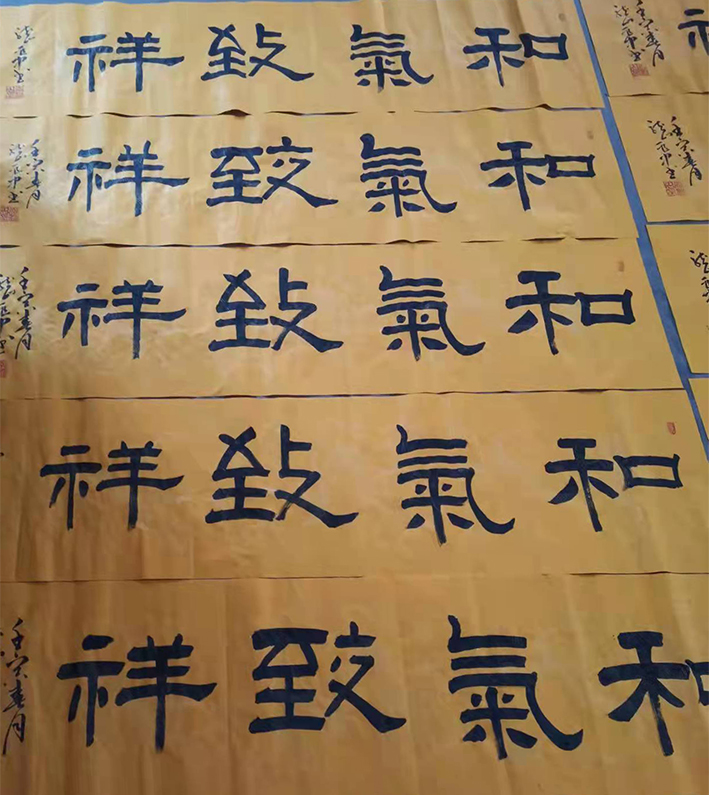 和氣致祥
和氣致祥
壬寅春月
和氣致祥
壬寅春月
和氣致祥
和氣致祥
壬寅春月
和
壬寅春月
壬寅春月